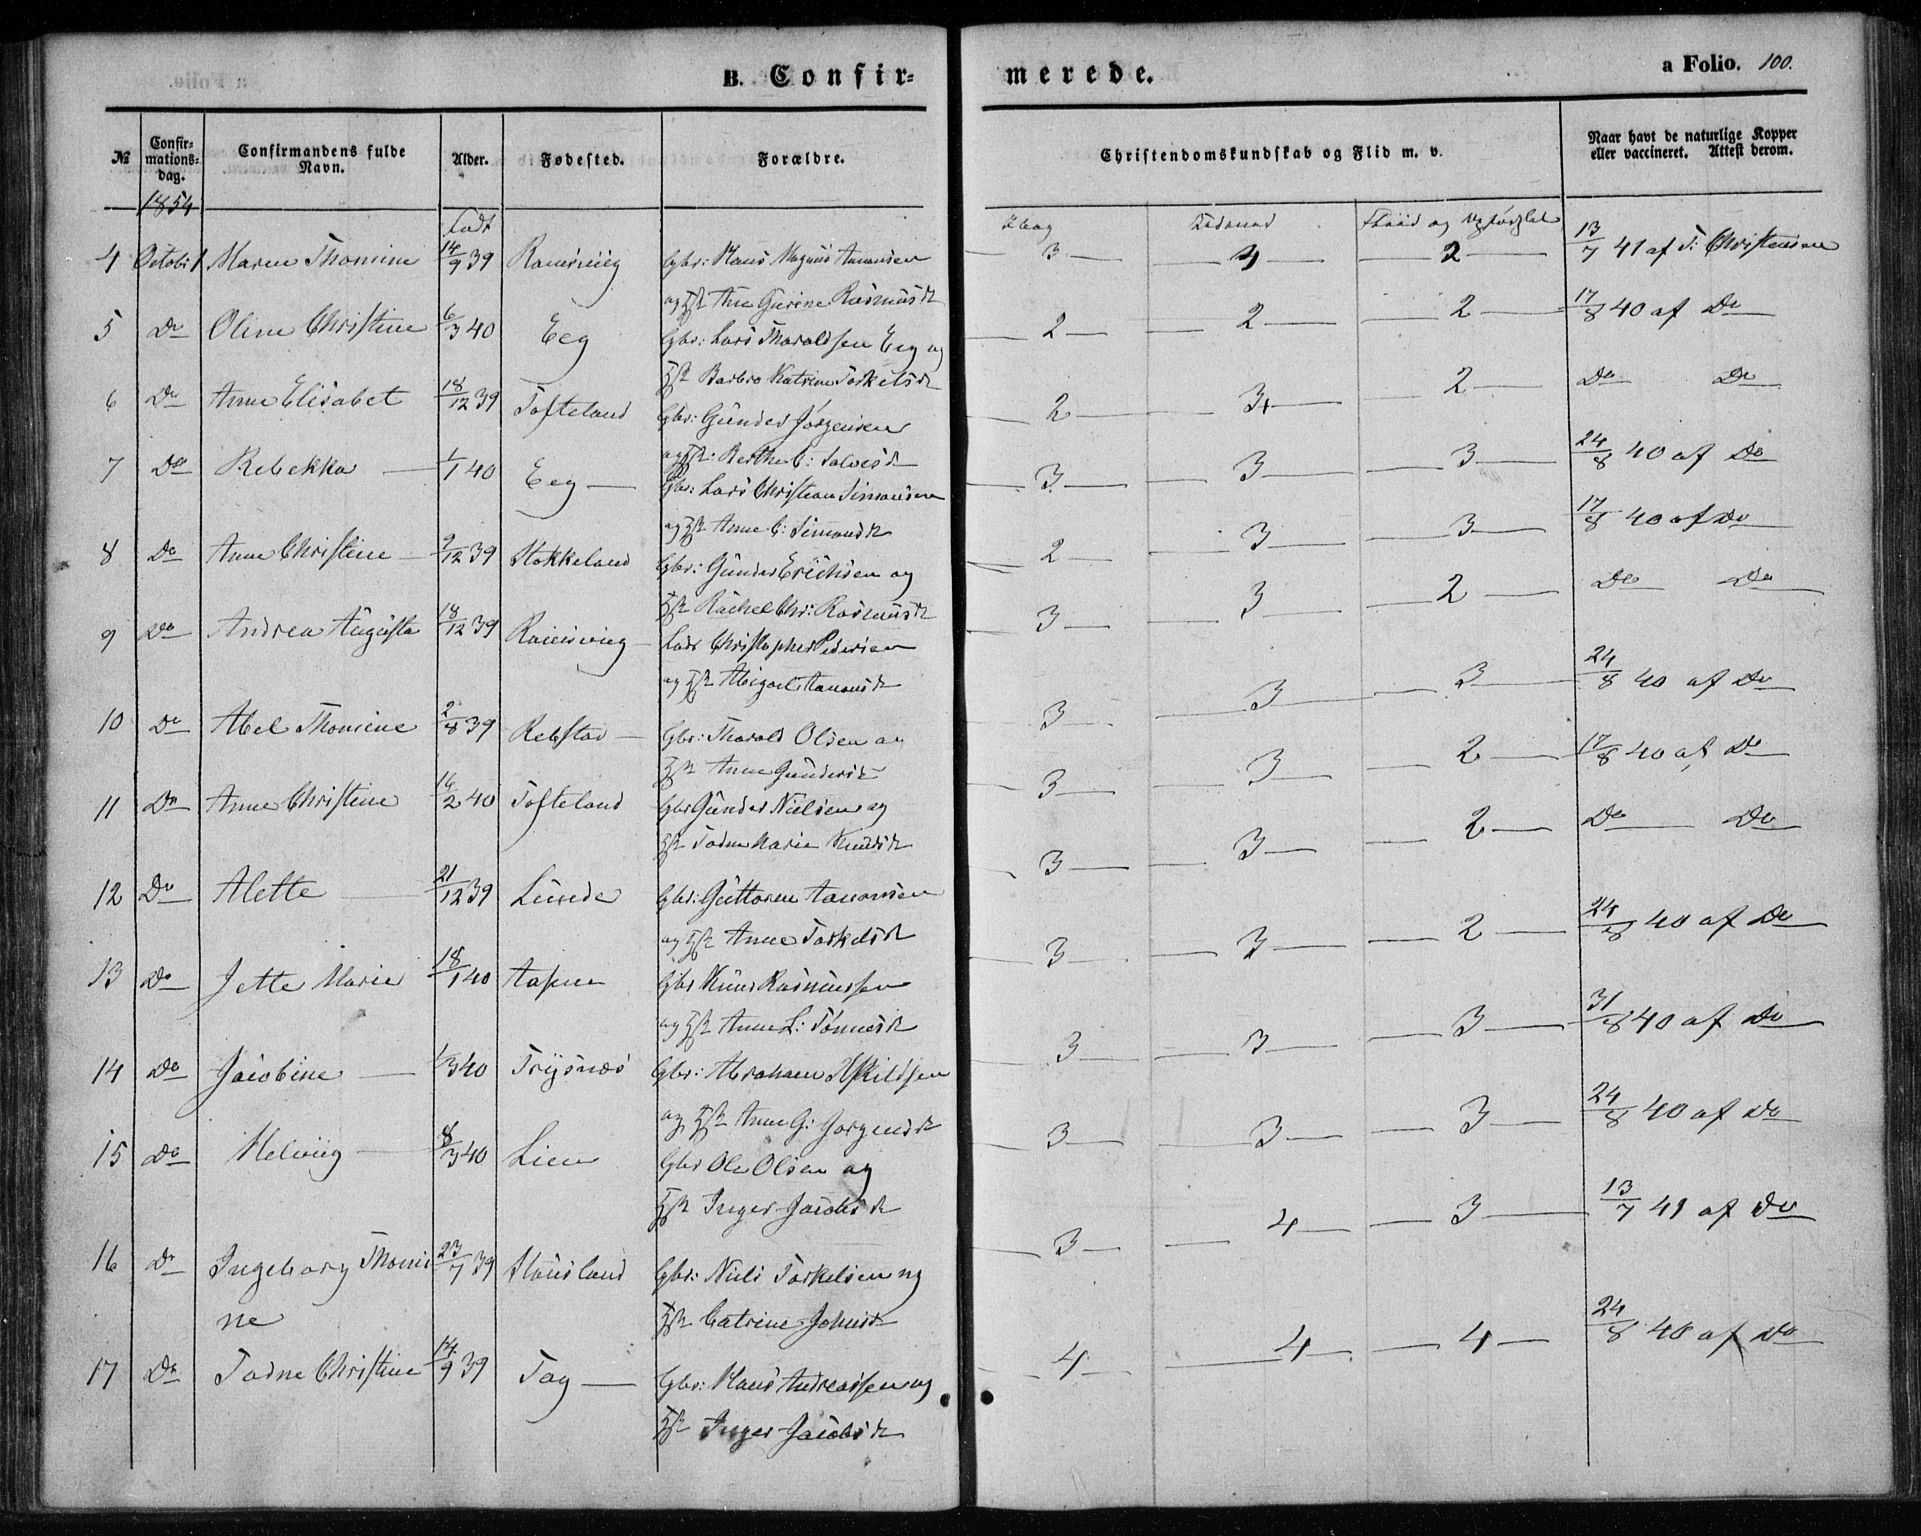 B. Confir-
merede.
a Folio. 100.
№
Confir-
mations-
dag.
Confirmandens fulde
Navn.
Alder.
Fødested.
Forældre.
Christendomskundskab og Flid m. v.
Naar havt de naturlige Kopper
eller vaccineret. Attest derom.
1854
født
Udenad
4 Octobr 1 Maren Thomine 14/9 39 Gbr: Hans Magnus Aanonsen 3 4 2 13/7 41 af T: Christensen
og Hst Ane Gurine Rasmusdr
5 Do Oline Christine 6/3 40 Eeg Gbr: Lars Tharaldsen Eeg og 2 2 2 17/8 40 af Do
Hst Barbro Katrine Torkelsdr
6 Do Anne Elisabet 18/12 39 Tofteland Gbr: Gunder Jørgensen 2 3 2 Do Do
og Hst Berthe C: Salvesdr
7 Do Rebekka 1/1 40 Eeg Gbr: Lars Christian Simonsen 3 3 3 24/8 40 af Do
og Hst Anne C: Simonsdr
8 Do Anne Christine 9/12 39 Stokkeland Gbr: Gunder Erichsen og 2 3 3 17/8 40 af Do
Hst Rachel Chr: Rasmusdr
9 Do Andrea Augusta 18/12 39 Lars Christopher Pedersen 3 3 2 Do Do
og Hst Abigael Aanonsdr
10 Do Abel Thomine 2/8 39 Rebstad Gbr: Tharald Olsen og 3 3 3 24/8 40 af Do
Hst Anne Gundersdr
11 Do Anne Christine 16/2 40 Tofteland Gbr Gunder Nielsen og 3 3 2 17/8 40 af Do
Hst Todne Marie Knudsdr
12 Do Alette 21/12 39 Lunde Gbr: Guttorm Aanonsen 3 3 2 Do Do
og Hst Anne Torkelsdr
13 Do Jette Marie 18/1 40 Gbr Knud Rasmussen 3 3 2 24/8 40 af Do
og Hst Anne L: Tønnesdr
14 Do Jacobine 1/3 40 Trysnæs Gbr: Abraham Askildsen 3 3 3 31/8 40 af Do
og Hst Anne G: Jørgensdr
15 Do Helvig 8/3 40 Lien Gbr Ole Olsen og 3 3 3 24/8 40 af Do
Hst Inger Jacobsdr
16 Do Ingeborg Thomi 23/7 39 Stousland Gbr: Niels Torkelsen og 3 4 3 13/7 41 af Do
ne Hst Catrine Johnsdr
17 Do Todne Christine 14/9 39 Tag Gbr: Hans Andreassen og 4 4 4 24/8 40 af Do
Hst Inger Jacobsdr